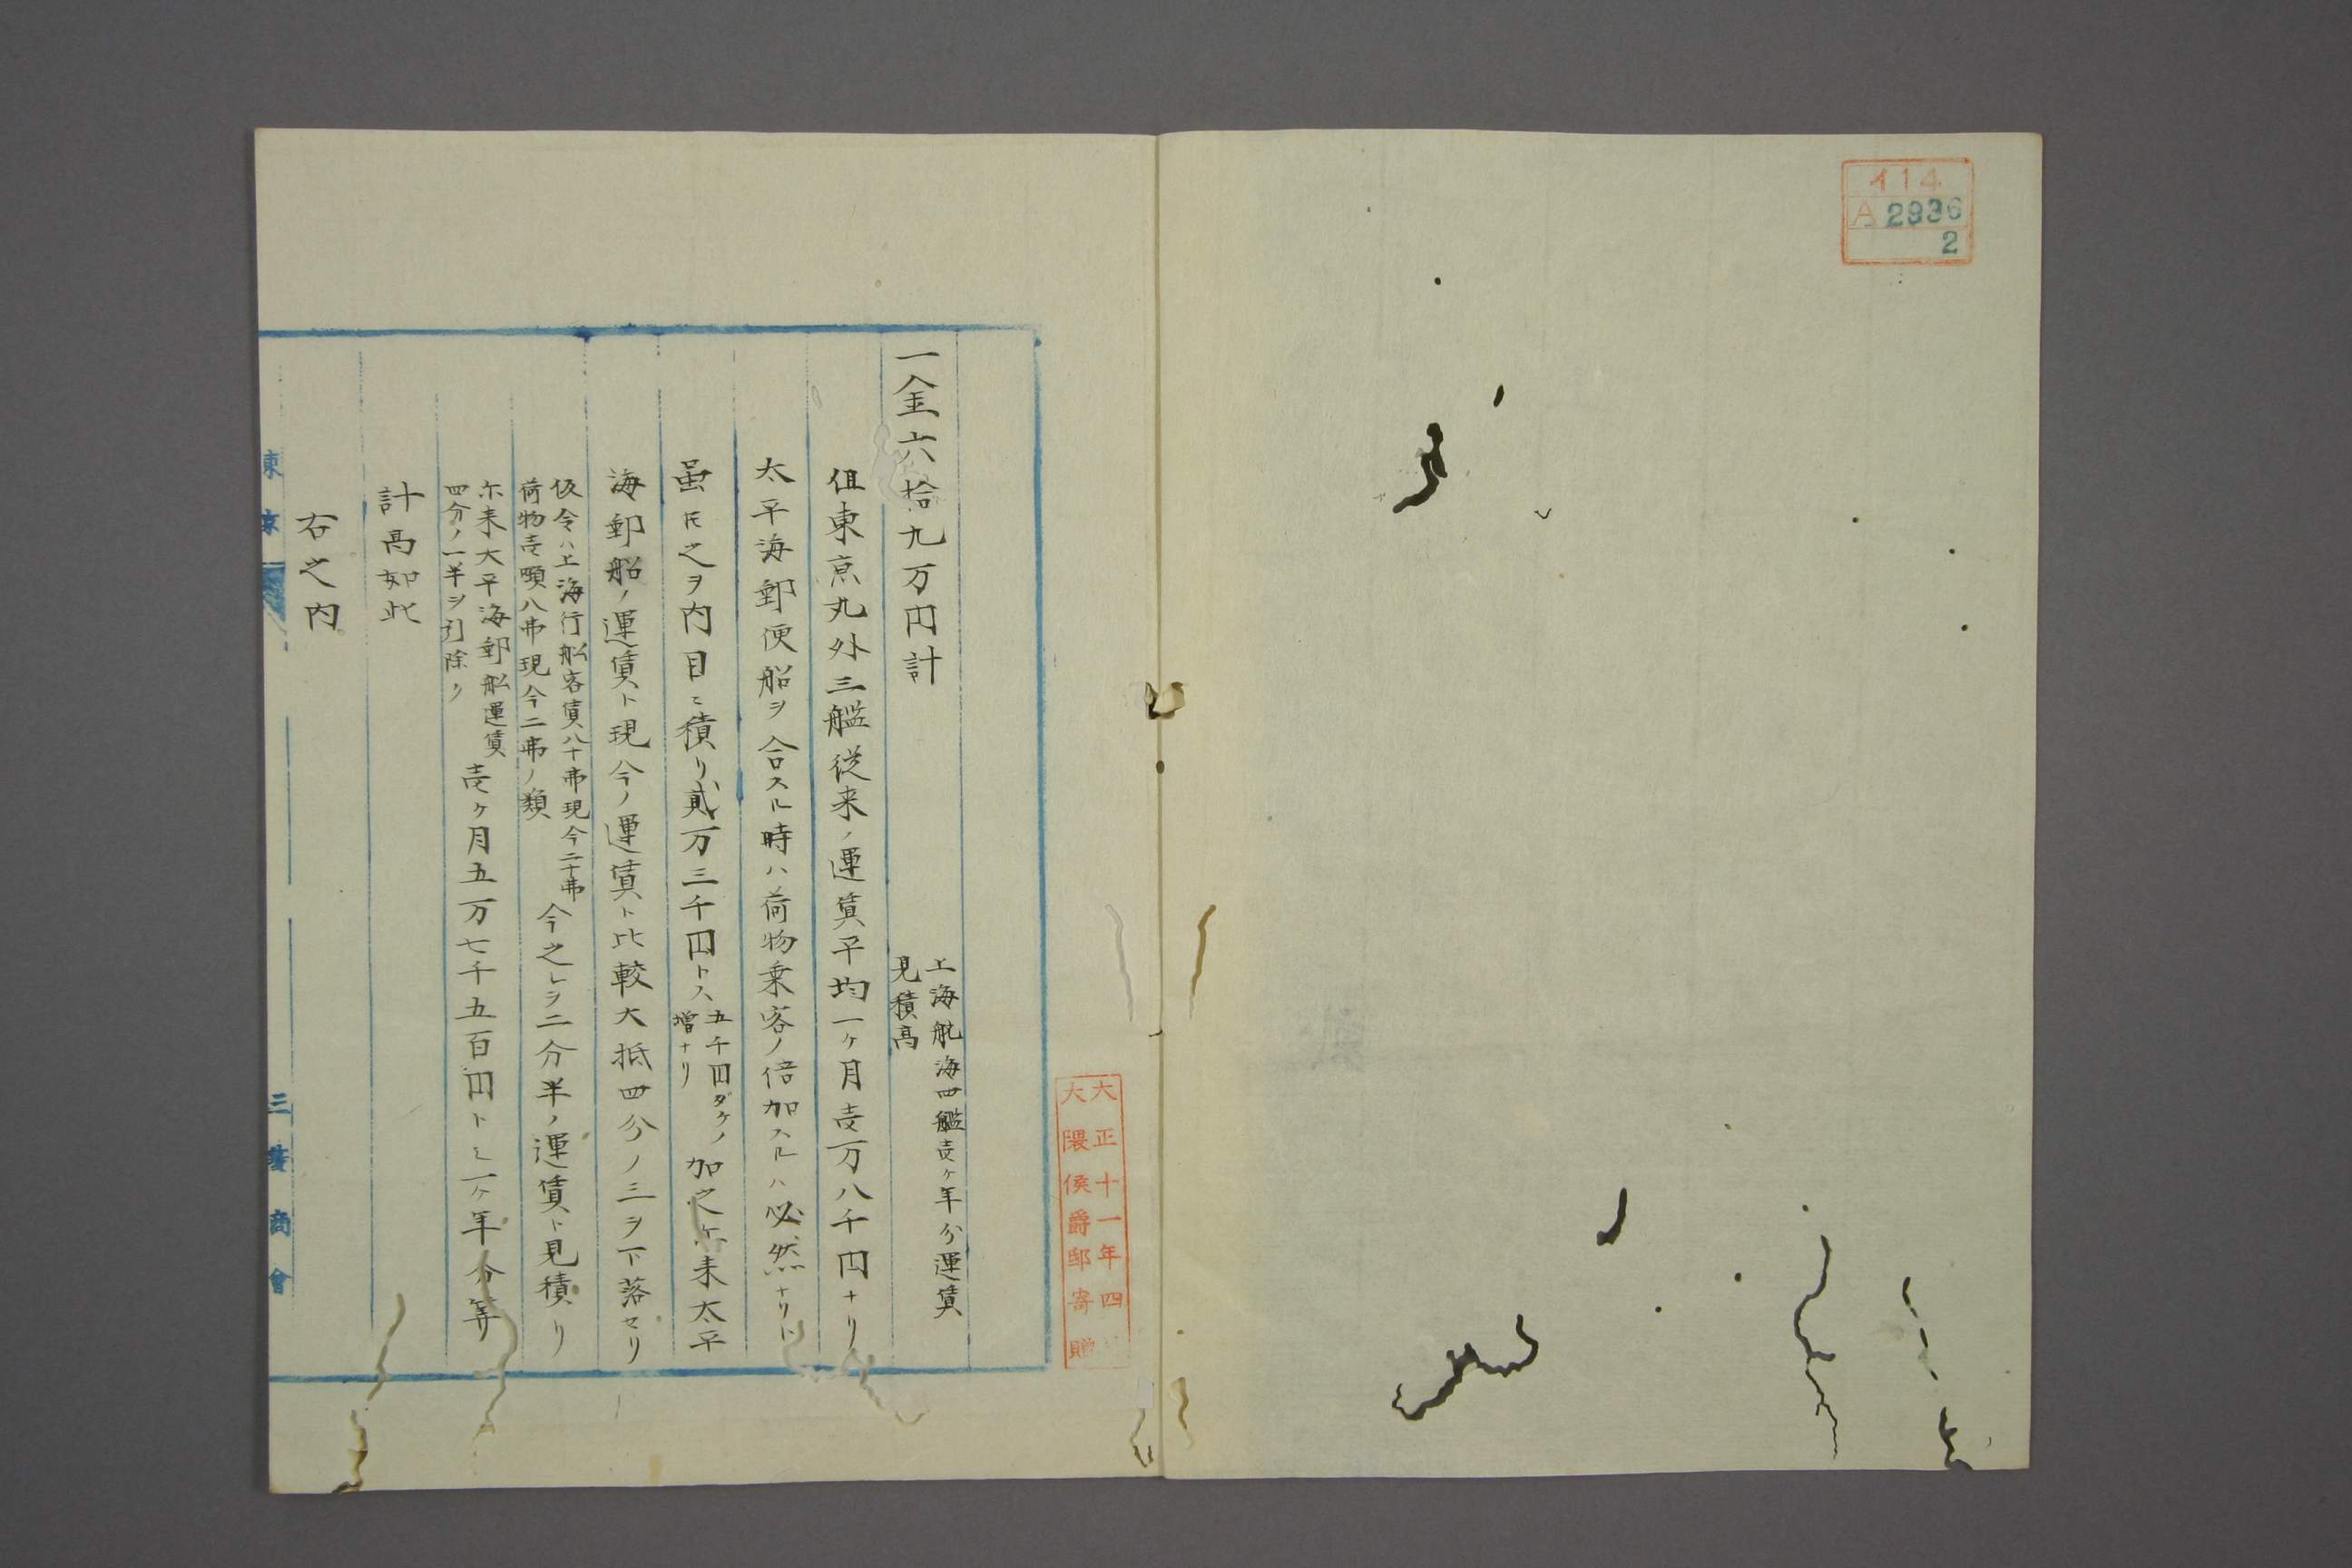 イ14
A 2936
2
大正十一年四
大隈侯爵邸寄贈
一金六拾九万円計
上海航海四艦壱ヶ年分運賃
見積高
但東京丸外三艦従来ノ運賃平均一ヶ月壱万八千円ナリ
太平海郵便船ヲ合スル時ハ荷物乗客ノ倍加スルハ必然ナリト
虽𪜈之ヲ内目ニ積リ貳万三千円トス
五千円ダケノ
増ナリ
加之尓来太平
海郵船ノ運賃ト現今ノ運賃ト比較大抵四分ノ三ヲ下落セリ
仮令ハ上海行船客賃八十弗現今二十弗
荷物壱噸八弗現今二弗ノ類
今之レヲ二分半ノ運賃ト見積リ
尓来大平海郵船運賃
四分ノ一半ヲ引除ク
壱ヶ月五万七千五百円トシ一ヶ年分等
計高如此
右之内
東京
三菱商會